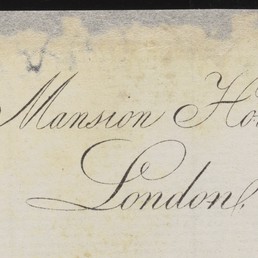 Mansion Ho
London.